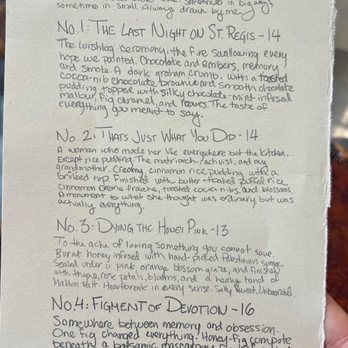 sometimes in big ways
sometime in small. Always drawn by me.
No. 1: The Last Night on St. Regis - 14
The wishlog ceremony, the fire swallowing every
hope we painted. Chocolate and embers, memory
and smoke. A dark graham crumb, with a toasted
cocoa-nib chocolate brownie and smooth chocolate
pudding topped with silky chocolate-mint infused
mallow, fig caramel, and leaves. The taste of
everything you meant to say.
No. 2: That's Just What You Did - 14
A woman who made her life everywhere but the kitchen...
except rice pudding. The matriarch, activist, and my
grandmother. Creamy cinnamon rice pudding with a
bruleed top. Finished with butter-toasted puffed rice,
cinnamon crème fraiche, toasted cocoa nibs, and blossoms.
A monument to what she thought was ordinary but was
actually everything.
No. 3: Dying the Honey Pink - 13
To the ache of loving something you cannot save.
Burnt honey infused with hand-picked
sealed under a pink orange blossom glaze, and finished
with thyme, rose petals, blooms, and a heavy hand of
Maldon salt. Heartbreak in every sense. Salty, Sweet, Unbearable
No. 4: Figment of Devotion - 16
Somewhere between memory and obsession.
One fig changed everything. Honey-fig compote
beneath a balsamic